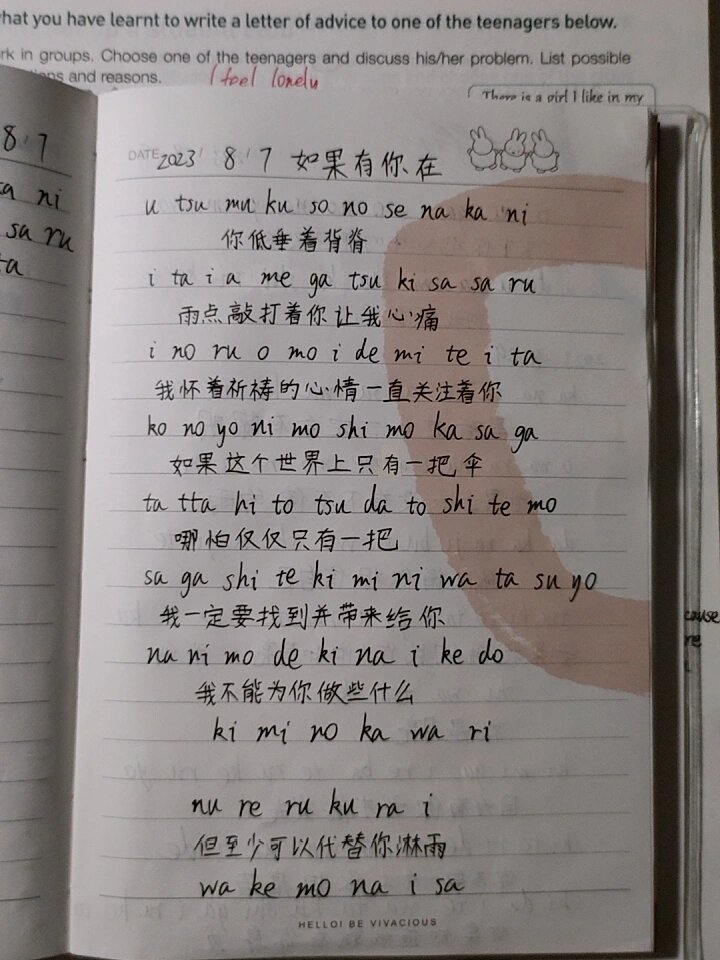 hat you have learnt to write a letter of advice to one of the teenagers below.
rk in groups. Choose one of the teenagers and discuss his/her problem. List possible
and reasons.
I feel lonely
There is a girl I like in my
8 / 7
ta ni
sa ru
ta
DATE 2023 / 8 / 7 如果有你在
u tsu mu ku so no se na ka ni
你低垂着背脊
i ta i a me ga tsu ki sa sa ru
雨点敲打着你让我心痛
i no ru o mo i de mi te i ta
我怀着祈祷的心情一直关注着你
ko no yo ni mo shi mo ka sa ga
如果这个世界上只有一把伞
ta tta hi to tsu da to shi te mo
哪怕仅仅只有一把
sa ga shi te ki mi ni wa ta su yo
我一定要找到并带来给你
na ni mo de ki na i ke do
我不能为你做些什么
ki mi no ka wa ri
nu re ru ku ra i
但至少可以代替你淋雨
wa ke mo na i sa
HELLO! BE VIVACIOUS